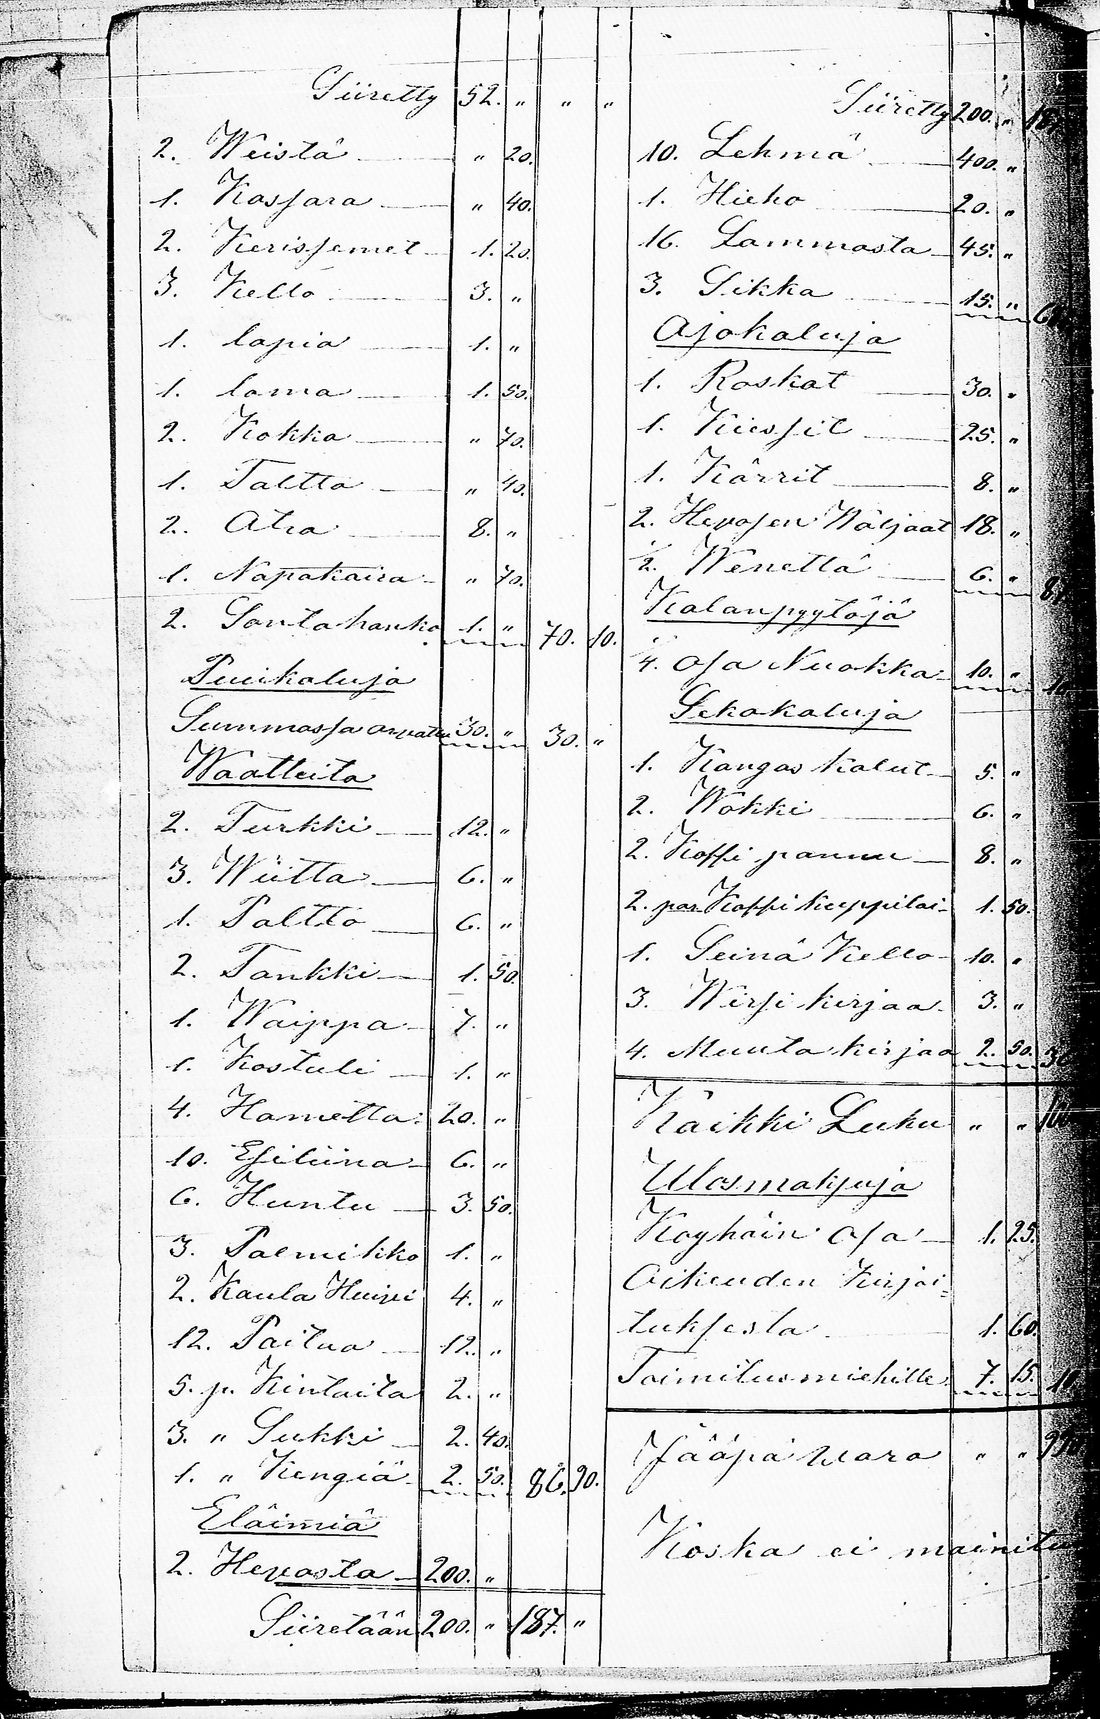 Siiretty 52. " " "
2. Weistä " 20.
1. Kassara " 40.
2. Kerissemet 1. 20.
3. Kello 3. "
1. lapia 1. "
1. lama 1. 50.
2. Kokka " 70.
1. Taltta " 40.
2. Atra 8. "
1. Napakaira " 70.
2. Santa hanko 1. " 70. 10.
Puukaluja
Summassa arvattu 30. " 30. "
Waatteita
2. Turkki 12. "
3. Wiitta 6. "
1. Paltto 6. "
2. Tankki 1. 50.
1. Waippa 7. "
1. Kostuli 1. "
4. Hametta 20. "
10. Esiliina 6. "
6. Huntu 3. 50.
3. Palmikko 1. "
2. Kaula Huivi 4. "
12. Paitaa 12. "
5. p. Kintaita 2. "
3. " Sukki 2. 40.
1. " Kengiä 2. 50. 86. 90.
Eläimiä
2. Hevosta 200. "
Siiretään 200. " 187. "
Siiretty 200. " 187
10. Lehmä 400. "
1. Hieho 20. "
16. Lammasta 45. "
3. Sikka 15. "
Ajokaluja
1. Raskat 30. "
1. Kiessit 25. "
1. Kärrit 8. "
2. Hevosen Waljaat 18. "
1/2. Wenettä 6. " 87
Kalanpyytöjä
1/4. osa Nuokka 10. " 10
Sekakaluja
1. Kangas kalut 5. "
2. Wokki 6. "
2. Koffi pannu 8. "
2. par Kaffi kuppiloi 1. 50.
1. Seinä Kello 10. "
3. Wirsi kirjaa 3. "
4. Muuta kirjaa 2. 50. 36
Kaikki Luku " "
Ulosmaksuja
Köyhäin osa 1. 25.
Oikeuden kirjoi=
tuksesta 1. 60.
Toimitusmiehille 7. 15. 10
Jääpä wara " "
Koska ei mainitu